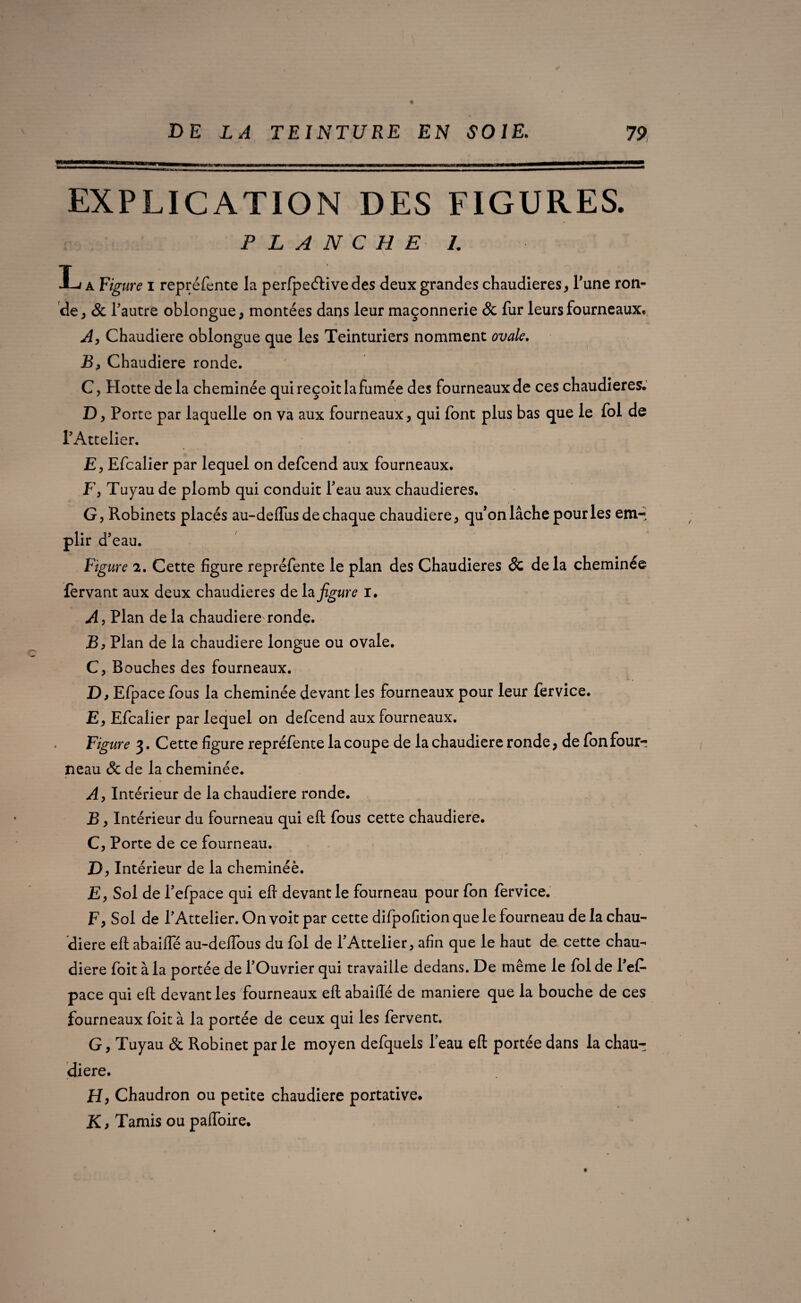 DE LA TEINTURE EN SOIE. 79
EXPLICATION DES FIGURES.
PLANCHE I.
LA Figure 1 repréſente la perſpective des deux grandes chaudieres, l'une ron-
de, & l'autre oblongue, montées dans leur maçonnerie & ſur leurs fourneaux.
A, Chaudiere oblongue que les Teinturiers nomment ovale.
B, Chaudiere ronde.
C, Hotte de la cheminée qui reçoit la fumée des fourneaux de ces chaudieres.
D, Porte par laquelle on va aux fourneaux, qui ſont plus bas que le ſol de
l'Attelier.
E, Eſcalier par lequel on deſcend aux fourneaux.
F, Tuyau de plomb qui conduit l'eau aux chaudieres.
G, Robinets placés au-deſſus de chaque chaudiere, qu'on lâche pour les em-
plir d'eau.
Figure 2. Cette figure repréſente le plan des Chaudieres & de la cheminée
ſervant aux deux chaudieres de la figure 1.
A, Plan de la chaudiere ronde.
B, Plan de la chaudiere longue ou ovale.
C, Bouches des fourneaux.
D, Eſpace ſous la cheminée devant les fourneaux pour leur ſervice.
E, Eſcalier par lequel on deſcend aux fourneaux.
Figure 3. Cette figure repréſente la coupe de la chaudiere ronde, de ſon four-
neau & de la cheminée.
A, Intérieur de la chaudiere ronde.
B, Intérieur du fourneau qui eſt ſous cette chaudiere.
C, Porte de ce fourneau.
D, Intérieur de la cheminéè.
E, Sol de l'eſpace qui eſt devant le fourneau pour ſon ſervice.
F, Sol de l'Attelier. On voit par cette diſpoſition que le fourneau de la chau-
diere eſt abaiſſé au-deſſous du ſol de l'Attelier, afin que le haut de cette chau-
diere ſoit à la portée de l'Ouvrier qui travaille dedans. De même le ſol de l'eſ-
pace qui eſt devant les fourneaux eſt abaiſſé de maniere que la bouche de ces
fourneaux ſoit à la portée de ceux qui les ſervent.
G, Tuyau & Robinet par le moyen deſquels l'eau eſt portée dans la chau-
diere.
H, Chaudron ou petite chaudiere portative.
K, Tamis ou paſſoire.